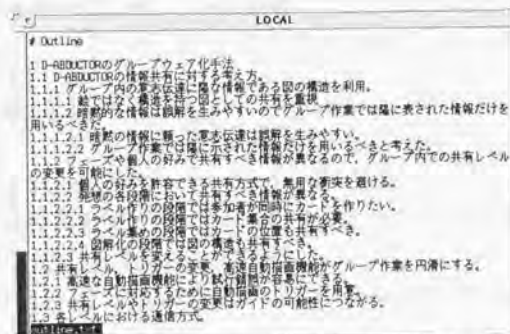 LOCAL
# Outline
1 D-ABDUCTORのグループウェア化手法
1.1 D-ABDUCTORの情報共有に対する考え方。
1.1.1 グループ内の意志伝達に陽な情報である図の構造を利用。
1.1.1.1 絵ではなく構造を持つ図としての共有を重視
1.1.1.2 暗黙的な情報は誤解を生みやすいのでグループ作業では陽に表された情報だけを
用いるべきだ。
1.1.1.2.1 暗黙の情報に頼った意志伝達は誤解を生みやすい。
1.1.1.2.2 グループ作業では陽に示された情報だけを用いるべきと考えた。
1.1.2 フェーズや個人の好みで共有すべき情報が異なるので、グループ内での共有レベル
の変更を可能にした。
1.1.2.1 個人の好みを許容できる共有方式で、無用な衝突を避ける。
1.1.2.2 発想の各段階において共有すべき情報が異なる。
1.1.2.2.1 ラベル作りの段階では参加者が同時にカードを作りたい。
1.1.2.2.2 ラベル作りの段階ではカード集合の共有が必要。
1.1.2.2.3 ラベル集めの段階ではカードの位置も共有すべき。
1.1.2.2.4 図解化の段階では図の構造も共有すべき。
1.1.2.3 共有レベルを変えることができるようにした。
1.2 共有レベル、トリガーの変更、高速自動描画機能がグループ作業を円滑にする。
1.2.1 高速な自動描画機能により試行錯誤が容易にできる。
1.2.2 フェーズに対応するために自動描画のトリガーを用意。
1.2.3 共有レベルやトリガーの変更はガイドの可能性につながる。
1.3 各レベルにおける通信方式。
outline.txt